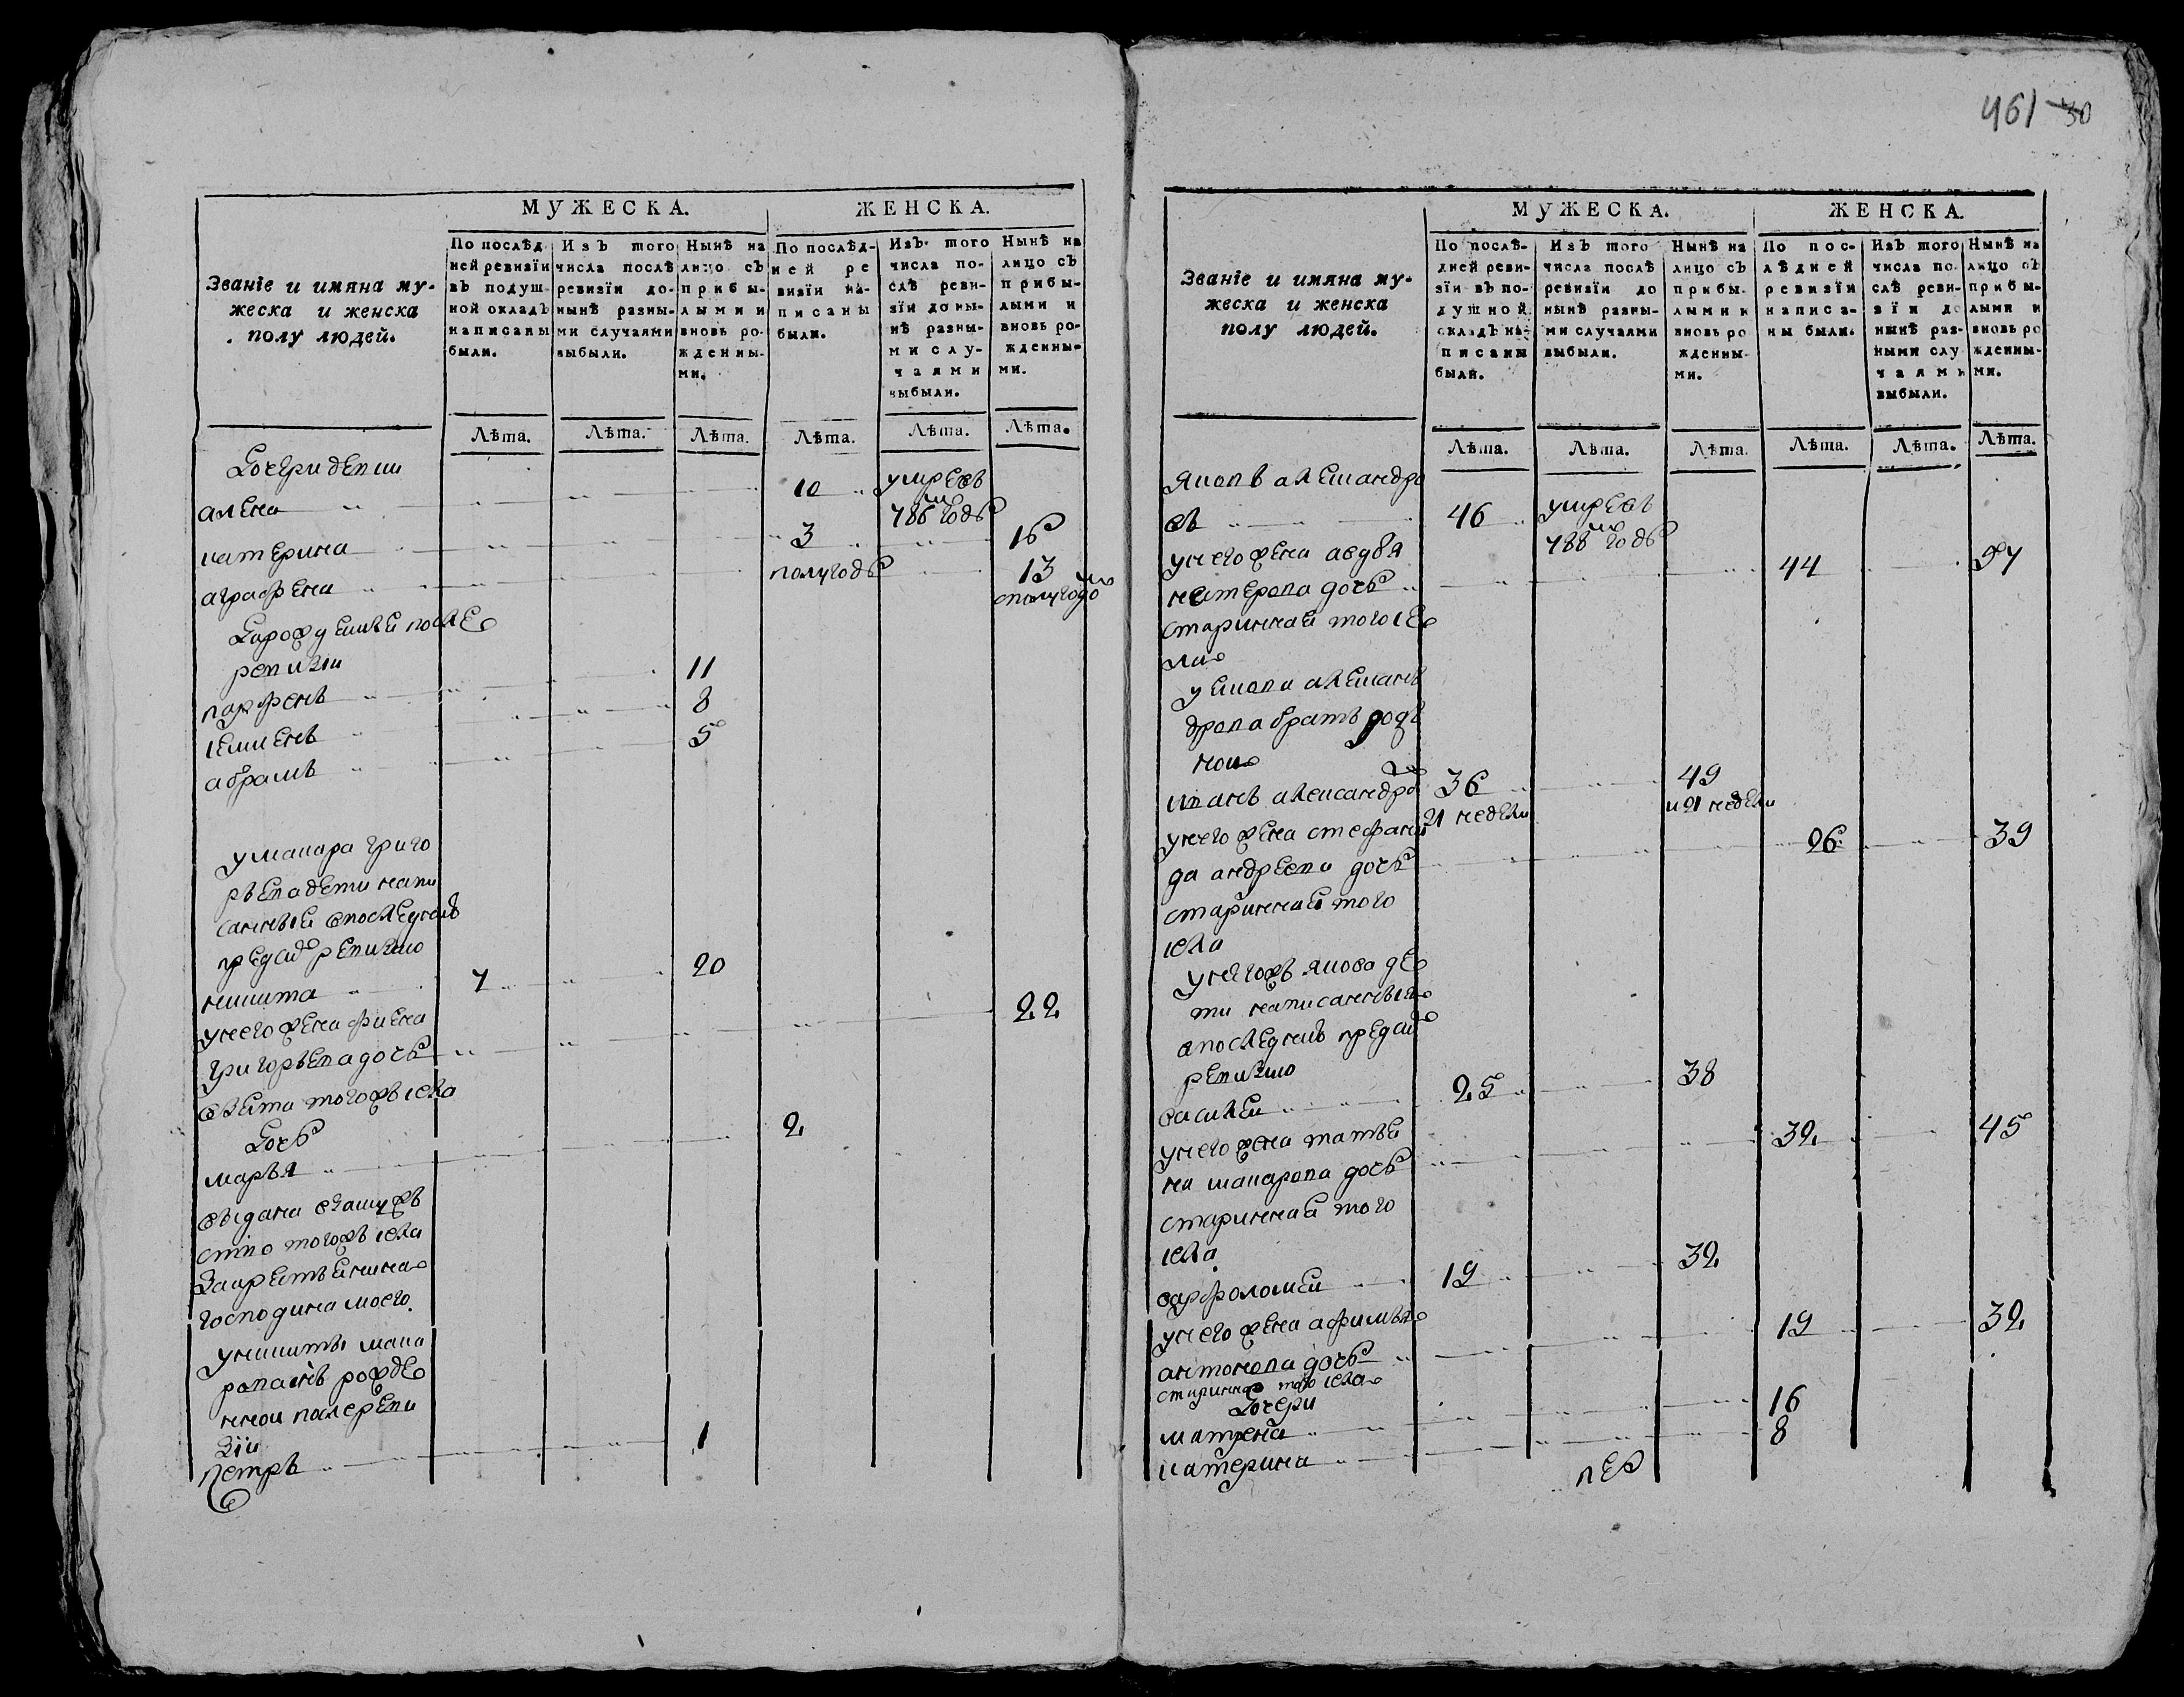 461 30
МУЖЕСКА. ЖЕНСКА.
Званіе и имяна му-
жеска и женска
полу людей.
По послѣд
ней ревизіи
въ подуш-
ной окладъ
написаны
были.
Изъ того
числа послѣ
ревизіи до-
нынѣ разны-
ми случаями
выбыли.
Нынѣ на
лицо съ
прибы-
лыми и
вновь ро-
жденны-
ми.
По послѣд-
ней ре
визіи на-
писаны
были.
Изъ того
числа по-
слѣ реви-
зіи до ны-
нѣ разны-
ми слу-
чаями
выбыли.
Нынѣ на
лицо съ
прибы-
лыми и
вновь ро-
жденны-
ми.
Лѣта. Лѣта. Лѣта. Лѣта. Лѣта. Лѣта.
дочери девки
алена 10 умре въ
786м годѣ
катерина 3 16
аграфена полугодѣ 13
сполугодомъ
народившей после
ревизии
парфенъ 11
семенъ 8
абрамъ 5
у макара григо
рьева дети напи
санныи въ последнею
пред сим ревизию
никита 7 20
у него жена фиена
григорьева дочь 22
взята того жъ села
дочь
марья 2
выдана в замуже
ство того жъ села
за крестьянина
господина моего
у никиты мака
рова сынъ рожде
нной после реви
зіи
петръ 1
МУЖЕСКА. ЖЕНСКА.
Званіе и имяна му-
жеска и женска
полу людей.
По послѣ-
дней реви-
зіи въ по-
душной
окладъ на-
писаны
были.
Изъ того
числа послѣ
ревизіи до
нынѣ разны-
ми случаями
выбыли.
Нынѣ на
лицо съ
прибы-
лыми и
вновь ро
жденны-
ми.
По пос-
лѣдней
ревизіи
написа-
ны были.
Изъ того
числа по
слѣ реви-
зіи до
нынѣ раз-
ными слу
чаями
выбыли.
Нынѣ на
лицо съ
прибы-
лыми и
вновь ро
жденны-
ми.
Лѣта. Лѣта. Лѣта. Лѣта. Лѣта. Лѣта.
яковъ александро
въ 46 умре въ
788м годѣ
у него жена авдоя
нестерова дочь 44 57
старинная того се
ла
у якова алексан
дрова братъ род
ной
иванъ александров 36 49
21 недели и 21 недели
у него жена стефани
да андреева дочь 26 39
старинная того
села
у него жъ якова де
ти написанныя
в последнею пред сим
ревизию
василей 25 38
у него жена татья
на макарова дочь 32 45
старинная того
села
варфоломей 19 32
у него жена афимья
антонова дочь 19 32
старинная того села
дочери
матрена 16
катерина 8